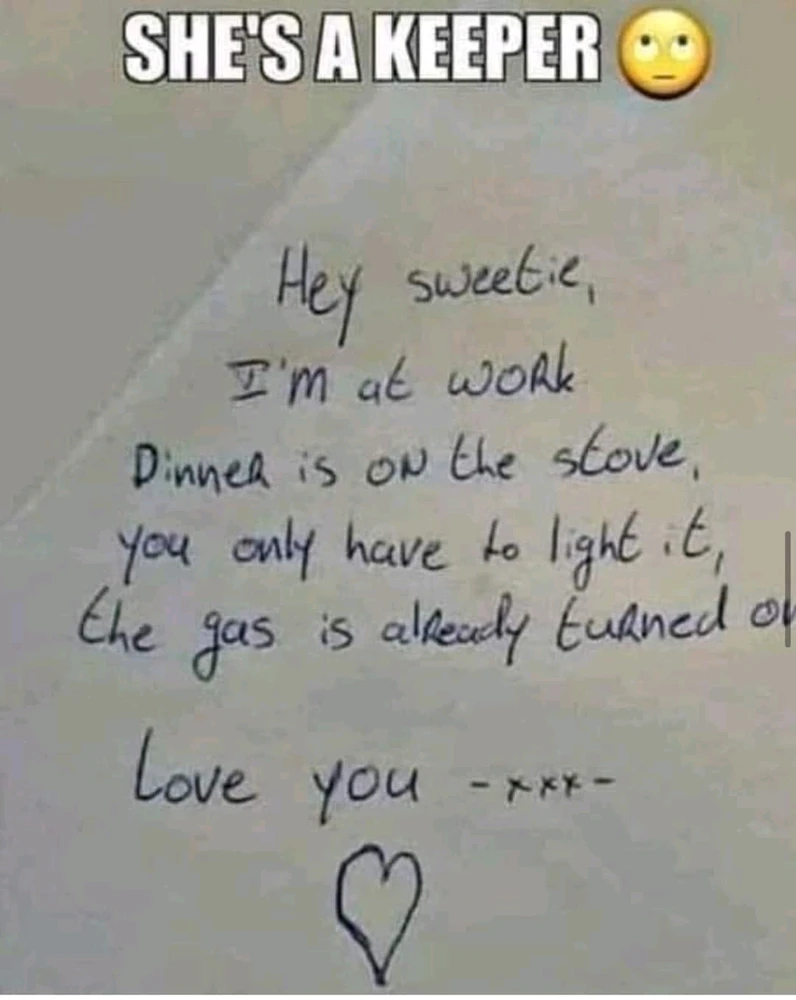 SHE'S A KEEPER 🙄
Hey sweetie,
I'm at work
Dinner is on the stove,
you only have to light it,
the gas is already turned on
Love you -xxx-